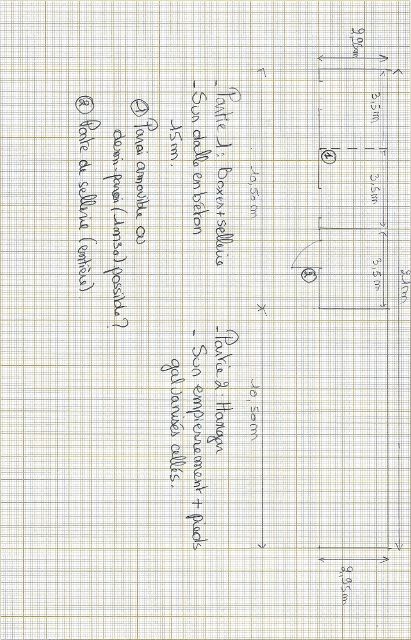 21m
3,5m
3,5m
3,5m
2,95m
2,95m
①
②
10,50m
10,50m
- Partie 1 : Boxes + sellerie
- Sur dalle en béton
15m.
- Partie 2 : Hangar
- Sur empierrement + pieds
galvanisés cellés.
① Paroi amovible ou
demi-paroi (1m30) possible?
② Porte de sellerie (entière)